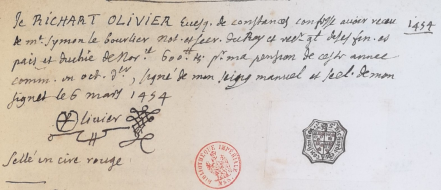 Je RICHART OLIVIER Evesq. de constances confesse avoir receu 1454
de mr. Symon le bourlier not. et secr. du Roy et rec.r g.l des fin. es
pais et duchié de Nor.t 600 tt pr. ma pension de ceste annee
comm. en oct. der, signé de mon seing manuel et scel. de mon
signet le 6 mars 1454
Olivier
Sellé en cire rouge
BIBLIOTHEQUE IMPERIALE